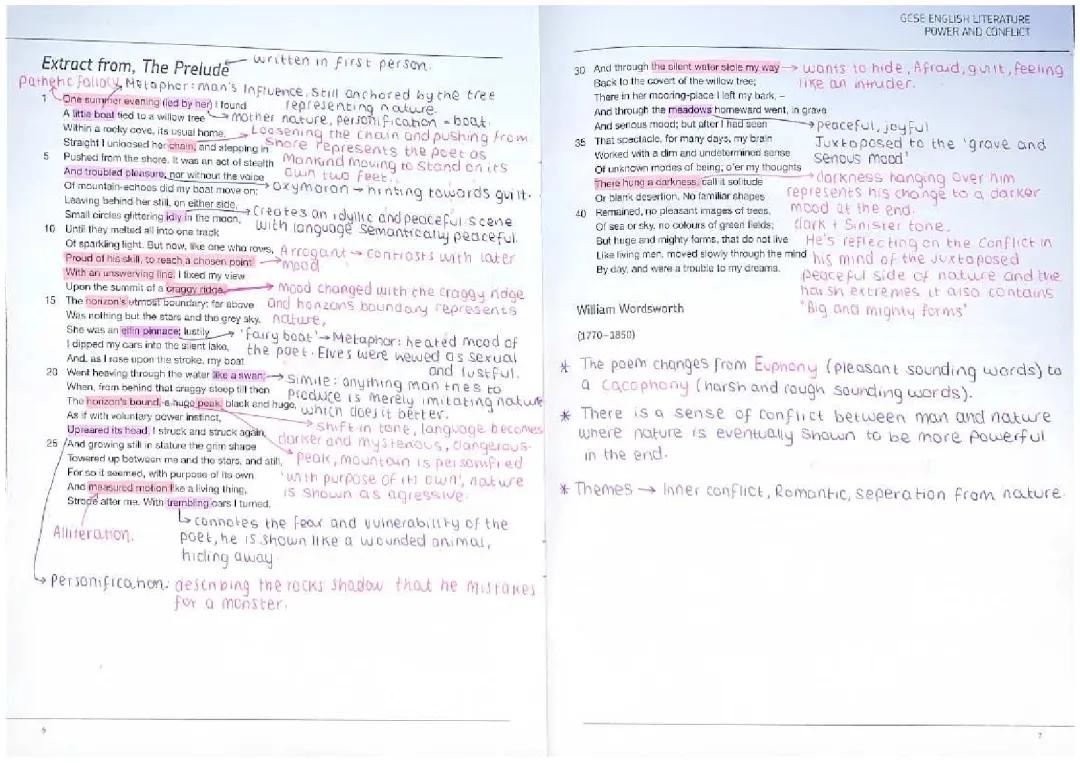 Extract from, The Prelude
written in first person.
Pathetic fallacy
Metaphor: man's influence, still anchored by the tree
representing nature.
1 One summer evening (led by her) I found
A little boat tied to a willow tree
mother nature, personification = boat.
Within a rocky cove, its usual home.
Straight I unloosed her chain, and stepping in
Loosening the chain and pushing from
shore represents the poet as
mankind moving to stand on its
own two feet.
5 Pushed from the shore. It was an act of stealth
And troubled pleasure, nor without the voice
oxymoron → hinting towards guilt.
Of mountain-echoes did my boat move on;
Leaving behind her still, on either side,
Small circles glittering idly in the moon,
Creates an idyllic and peaceful scene
with language semantically peaceful.
10 Until they melted all into one track
Of sparkling light. But now, like one who rows,
Proud of his skill, to reach a chosen point
Arrogant → contrasts with later
mood
With an unswerving line, I fixed my view
Upon the summit of a craggy ridge,
mood changed with the craggy ridge
and horizons boundary represents
nature,
15 The horizon's utmost boundary; far above
Was nothing but the stars and the grey sky.
She was an elfin pinnace; lustily
'fairy boat' → Metaphor: heated mood of
the poet. Elves were viewed as sexual
and lustful.
I dipped my oars into the silent lake,
And, as I rose upon the stroke, my boat
20 Went heaving through the water like a swan;
Simile: anything man tries to
produce is merely imitating nature
which does it better.
When, from behind that craggy steep till then
The horizon's bound, a huge peak, black and huge,
shift in tone, language becomes
darker and mysterious, dangerous.
As if with voluntary power instinct,
Upreared its head. I struck and struck again,
25 And growing still in stature the grim shape
Towered up between me and the stars, and still,
Peak, mountain is personified
'with purpose of its own', nature
is shown as agressive.
For so it seemed, with purpose of its own
And measured motion like a living thing,
Strode after me. With trembling oars I turned,
Alliteration.
connotes the fear and vulnerability of the
poet, he is shown like a wounded animal,
hiding away.
Personification: describing the rocks shadow that he mistakes
for a monster.
6
GCSE ENGLISH LITERATURE
POWER AND CONFLICT
30 And through the silent water stole my way
wants to hide, Afraid, guilt, feeling
like an intruder.
Back to the covert of the willow tree;
There in her mooring-place I left my bark, –
And through the meadows homeward went, in grave
And serious mood; but after I had seen
peaceful, joyful
Juxtoposed to the 'grave and
serious mood'
35 That spectacle, for many days, my brain
Worked with a dim and undetermined sense
Of unknown modes of being; o'er my thoughts
There hung a darkness, call it solitude
darkness hanging over him
represents his change to a darker
mood at the end.
Or blank desertion. No familiar shapes
40 Remained, no pleasant images of trees,
Of sea or sky, no colours of green fields;
dark + sinister tone.
But huge and mighty forms, that do not live
Like living men, moved slowly through the mind
By day, and were a trouble to my dreams.
He's reflecting on the conflict in
his mind of the juxtoposed
peaceful side of nature and the
harsh extremes it also contains
"Big and mighty forms'
William Wordsworth
(1770–1850)
* The poem changes from Euphony (pleasant sounding words) to
a cacophony (harsh and rough sounding words).
* There is a sense of conflict between man and nature
where nature is eventually shown to be more powerful
in the end.
* Themes → Inner conflict, Romantic, seperation from nature
7